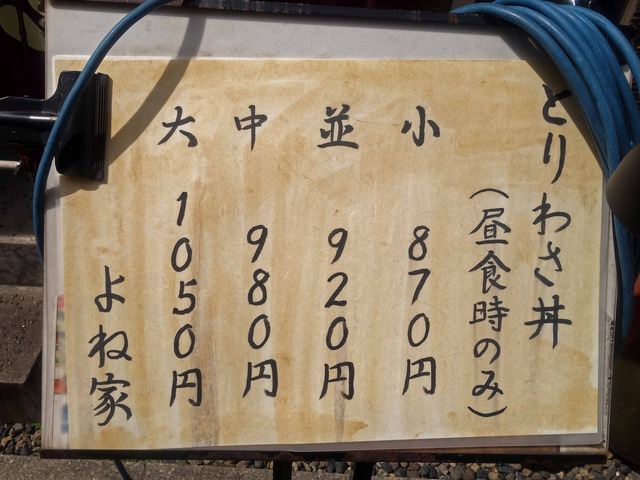 とりわさ丼
（昼食時のみ）
小 870円
並 920円
中 980円
大 1050円
よね家